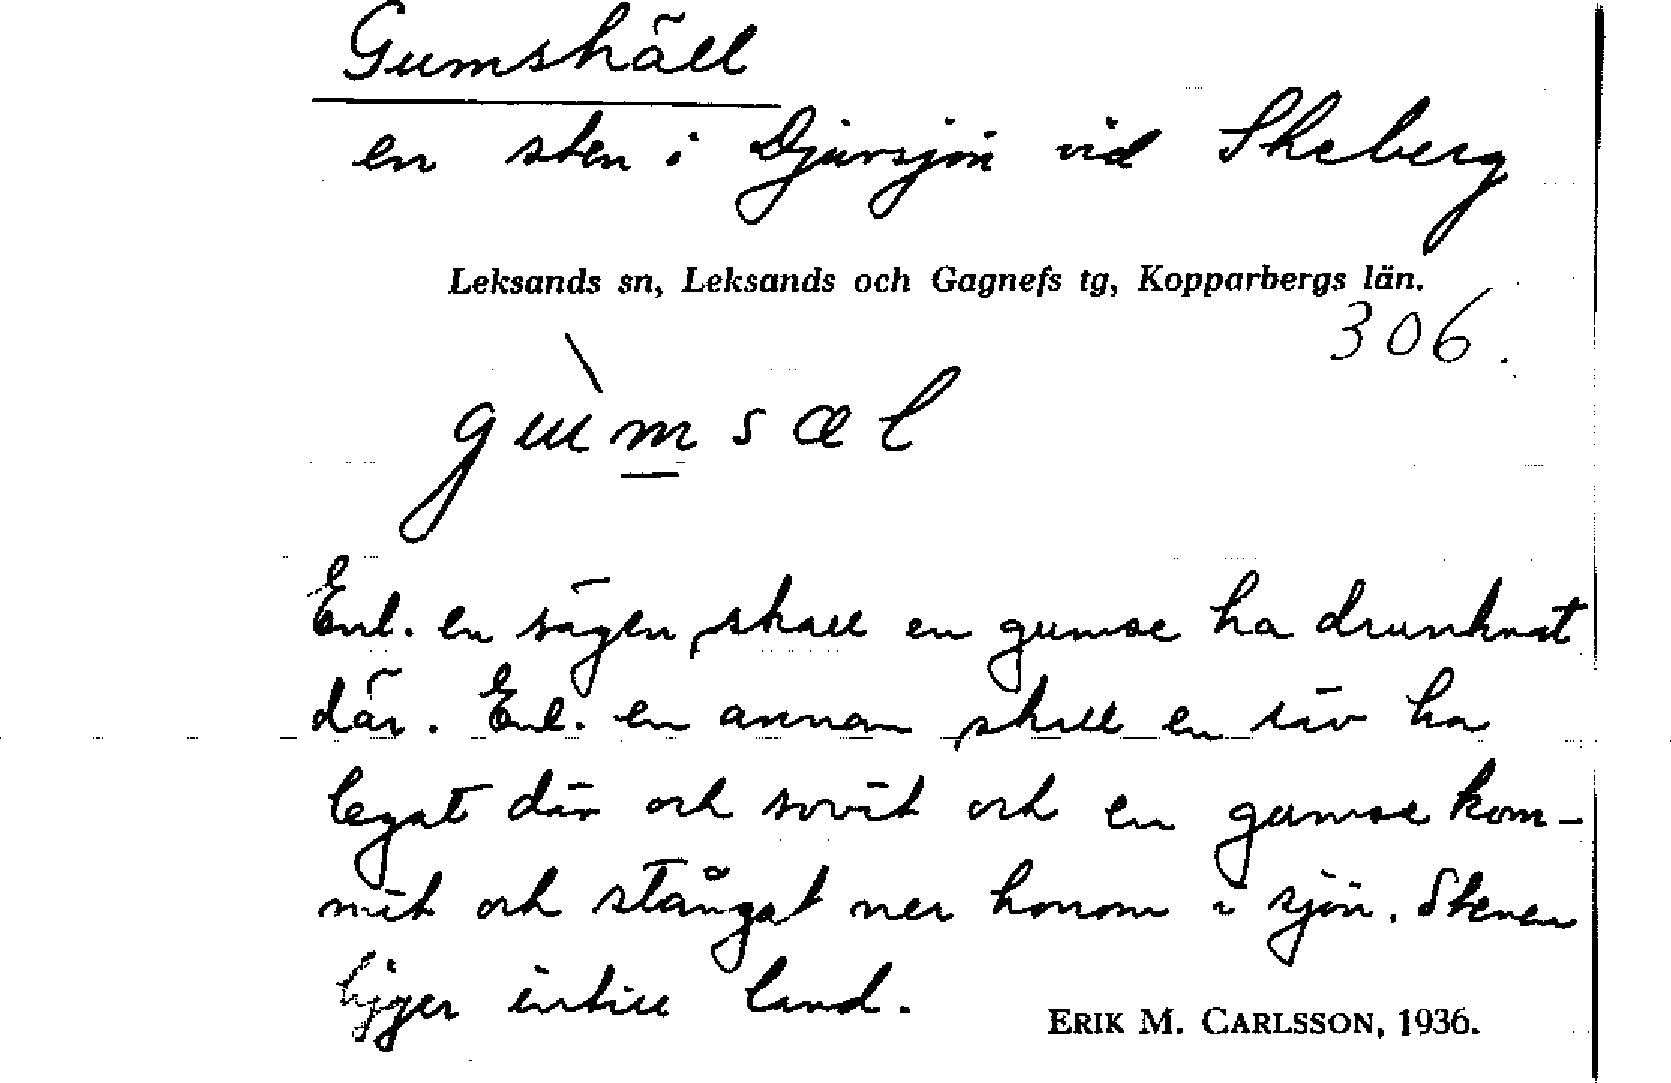 Gumshäll
en sten i Djursjön vid Skeberg
Leksands sn, Leksands och Gagnefs tg, Kopparbergs län.
306.
gùmsæl
Enl. en sägen skall en gumse ha drunknat
där. Enl. en annan skall en räv ha
legat där och sovit och en gumse kom-
mit och stångat ner honom i sjön. Stenen
ligger intill land.
ERIK M. CARLSSON, 1936.